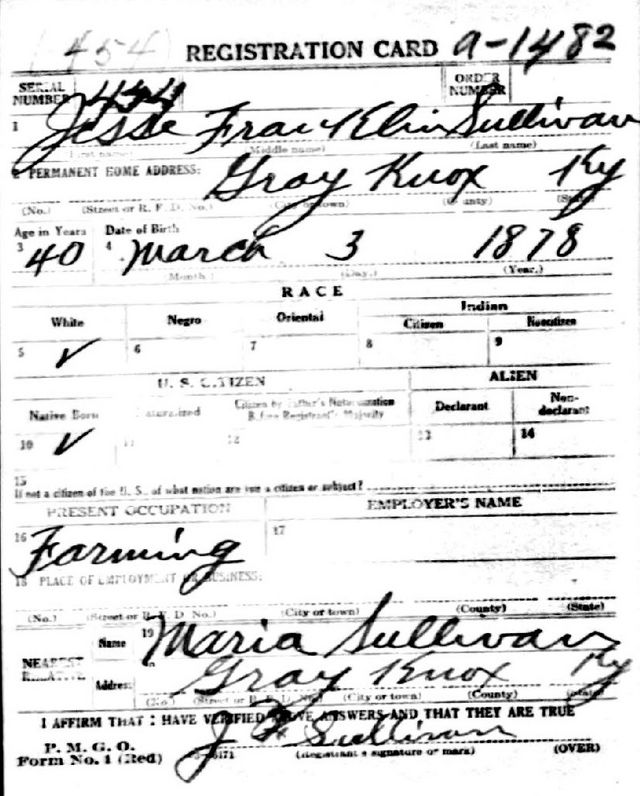 (454) REGISTRATION CARD A-1482
SERIAL NUMBER 454 ORDER NUMBER
1 Jesse Franklin Sullivan
(First name) (Middle name) (Last name)
2 PERMANENT HOME ADDRESS: Gray Knox Ky
(No.) (Street or R. F. D. No.) (City or town) (County) (State)
Age in Years Date of Birth
3 40 4 March 3 1878
(Month.) (Day.) (Year.)
RACE
White Negro Oriental Indian
Citizen Noncitizen
5 ✓ 6 7 8 9
U. S. CITIZEN ALIEN
Native Born Naturalized Citizen by Father's Naturalization Before Registrant's Majority Declarant Non-declarant
10 ✓ 11 12 13 14
15
If not a citizen of the U. S., of what nation are you a citizen or subject?
PRESENT OCCUPATION EMPLOYER'S NAME
16 Farming 17
18 PLACE OF EMPLOYMENT OR BUSINESS:
(No.) (Street or R. F. D. No.) (City or town) (County) (State)
NEAREST RELATIVE
Name 19 Maria Sullivan
Address Gray Knox Ky
(No.) (Street or R. F. D. No.) (City or town) (County) (State)
I AFFIRM THAT I HAVE VERIFIED ABOVE ANSWERS AND THAT THEY ARE TRUE
P. M. G. O.
Form No. 1 (Red) J F Sullivan
(Registrant's signature or mark) (OVER)